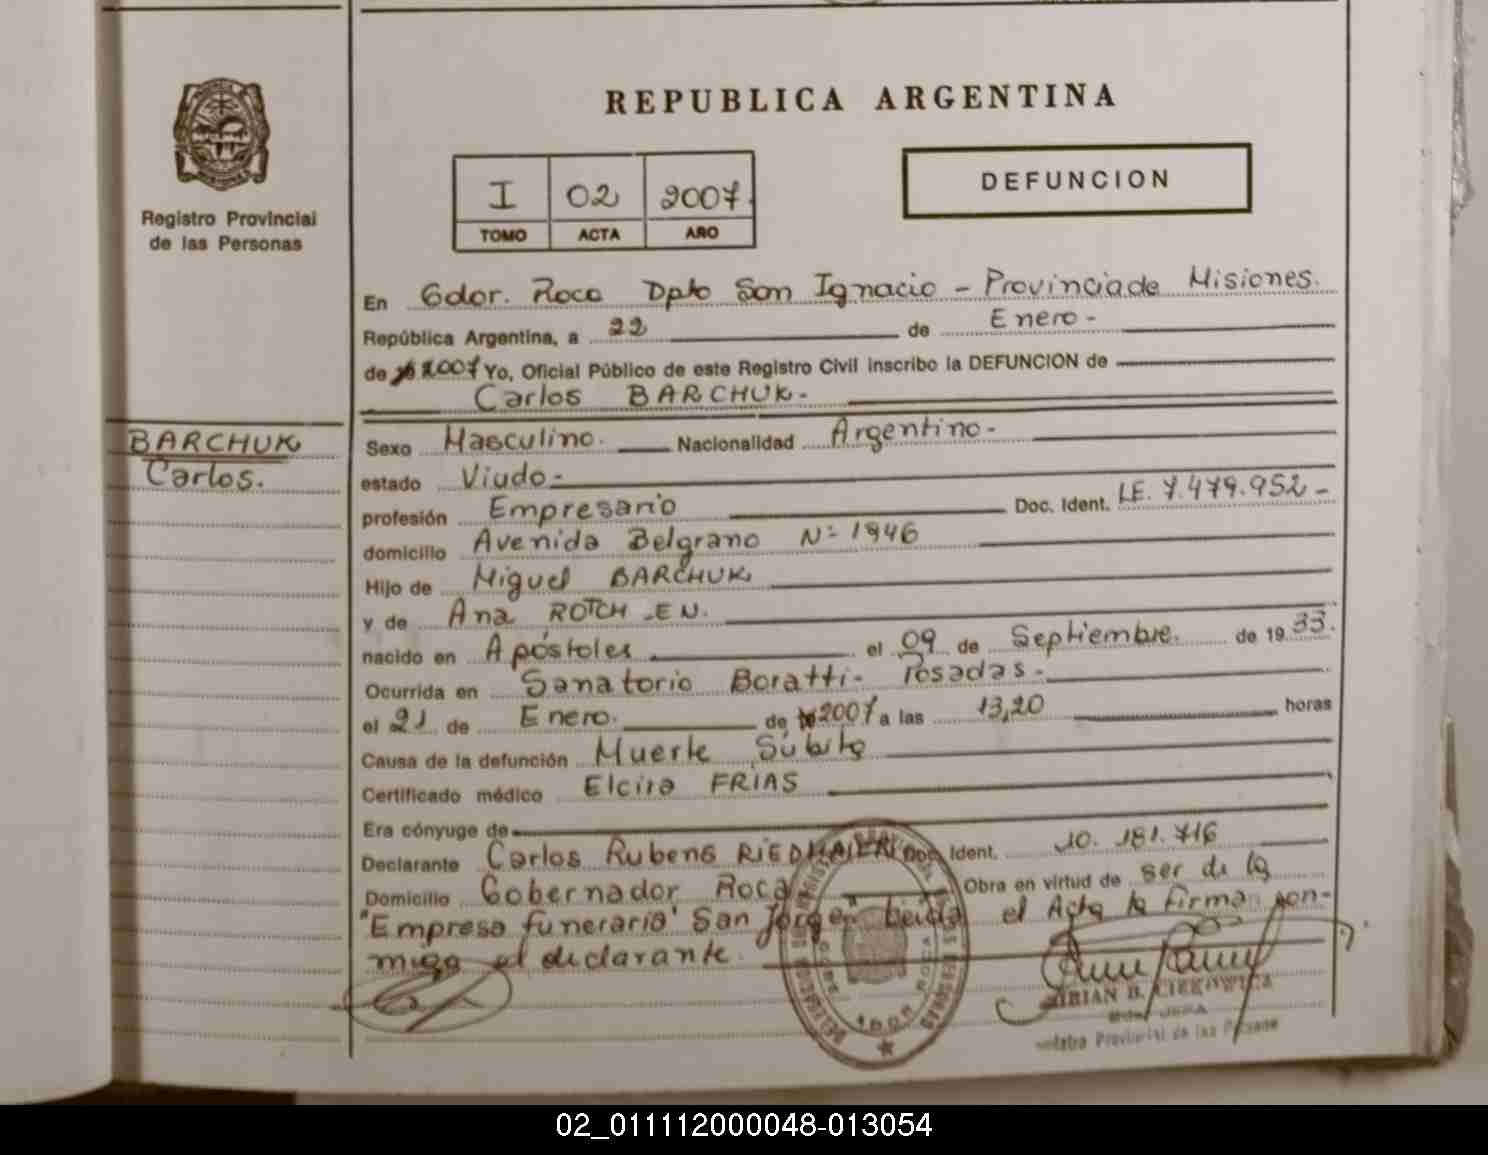 REPUBLICA ARGENTINA
I 02 2007
TOMO ACTA AÑO
DEFUNCION
Registro Provincial
de las Personas
En Gdor. Roca Dpto San Ignacio - Provincia de Misiones.
República Argentina, a 22 de Enero -
de 2007 Yo, Oficial Público de este Registro Civil inscribo la DEFUNCION de
Carlos BARCHUK -
BARCHUK
Carlos.
Sexo Masculino. Nacionalidad Argentino -
estado Viudo -
profesión Empresario Doc. Ident. LE. 7.479.952 -
domicilio Avenida Belgrano Nº 1946
Hijo de Miguel BARCHUK
y de Ana ROTCH EN.
nacido en Apóstoles el 09 de Septiembre. de 19 33.
Ocurrida en Sanatorio Boratti - Posadas -
el 21 de Enero. de 2007 a las 13,20 horas
Causa de la defunción Muerte Súbita
Certificado médico Elcira FRIAS
Era cónyuge de
Declarante Carlos Rubens RIEDMAIER Doc. Ident. 10. 181. 716
Domicilio Gobernador Roca Obra en virtud de ser de la
"Empresa funeraria" San Jorge" Leida el Acta la firma con-
migo el declarante.
Provincial de las Personas
02_011112000048-013054